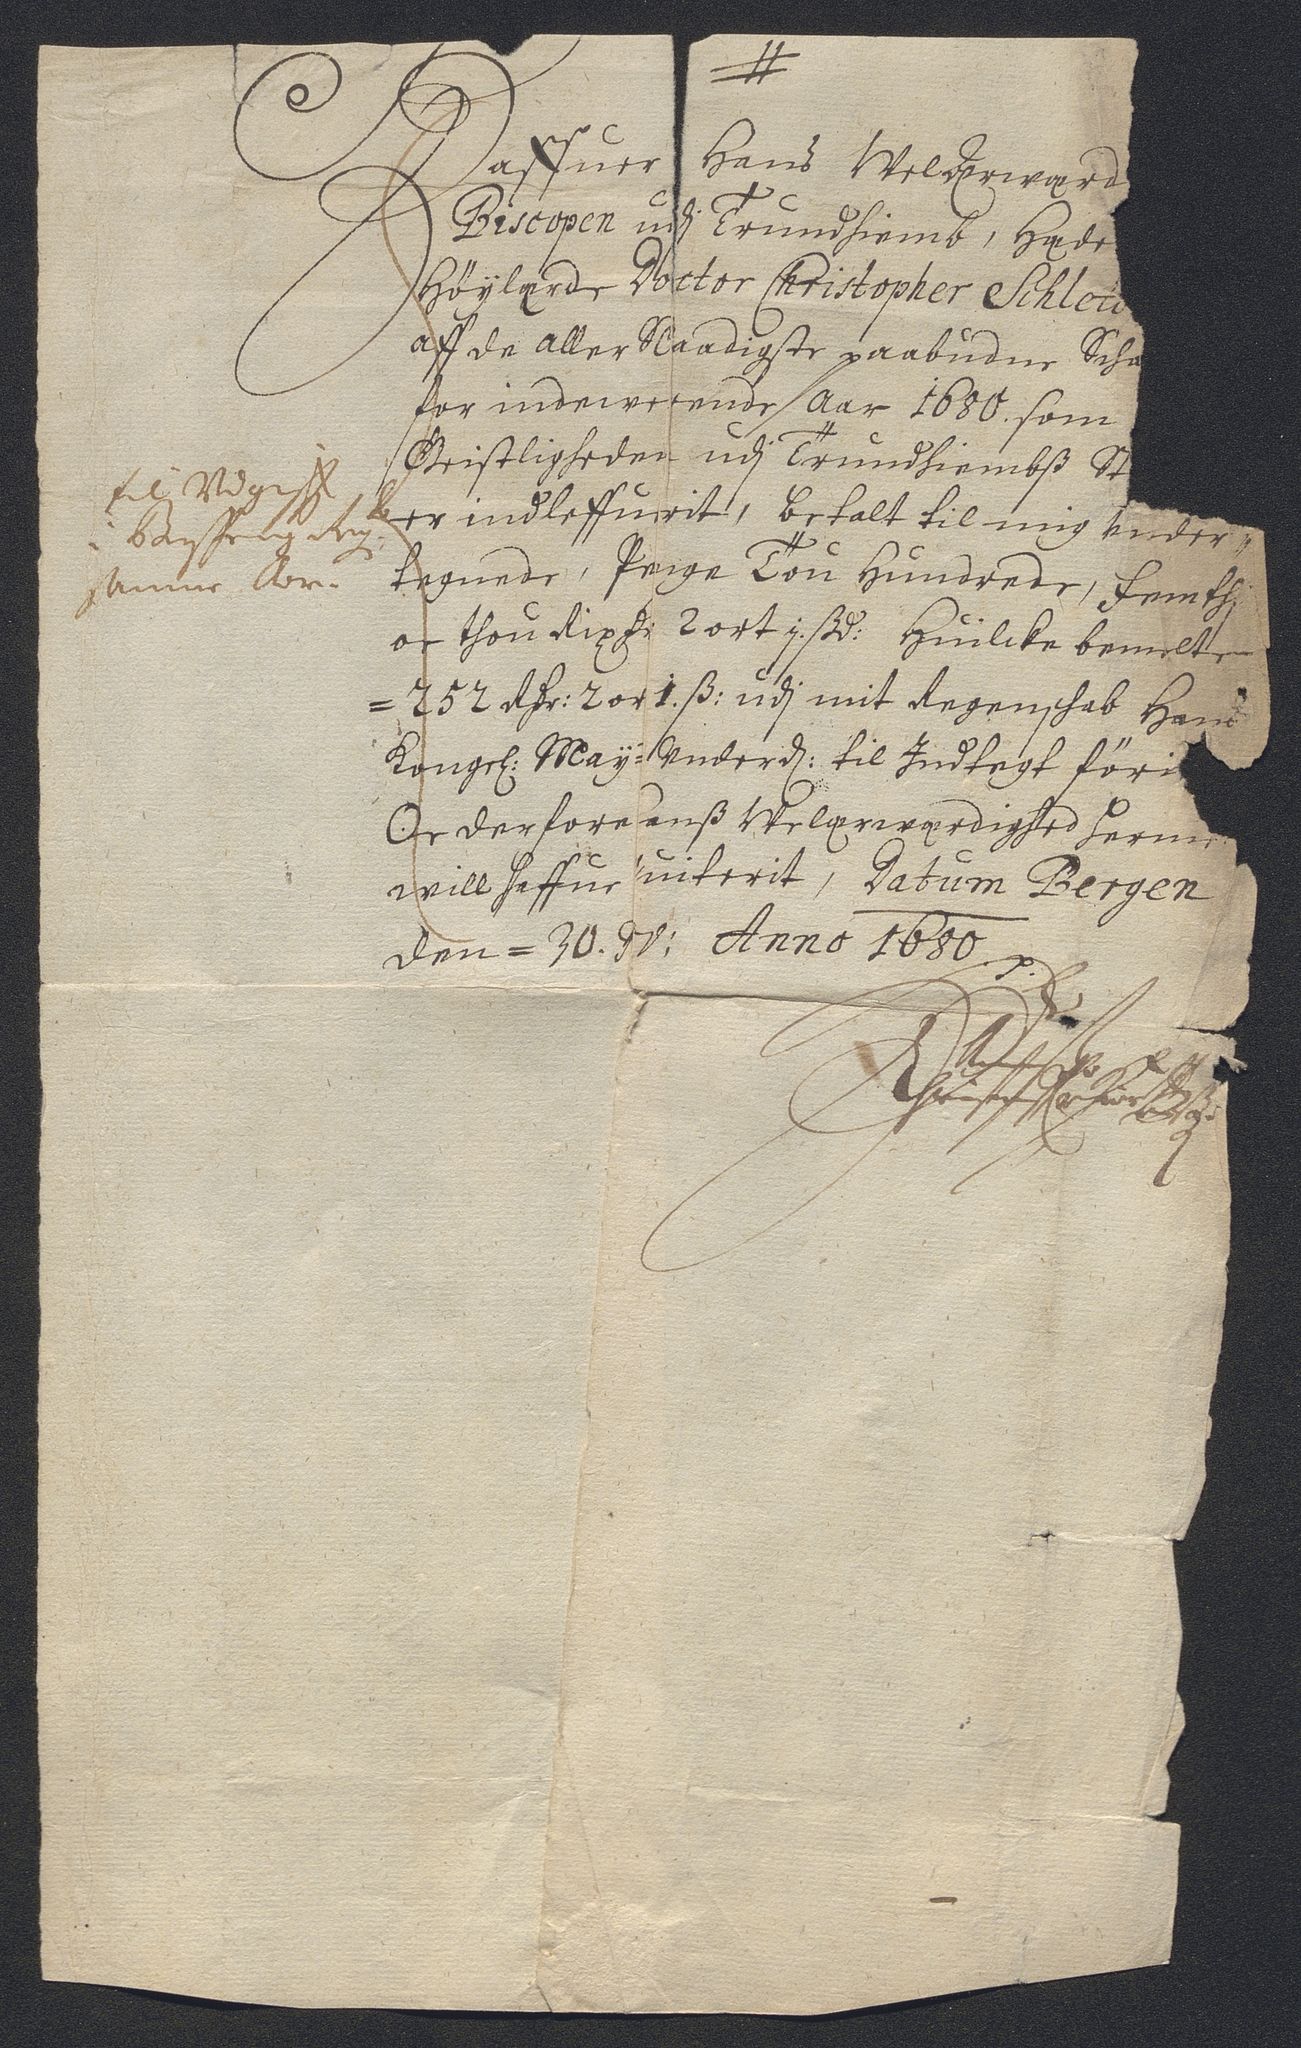 Haffuer Hans Welærwærd
Biscopen udj Trundhiemb, Hæde
Höylærde Doctor Christopher Schlet
aff de aller Naadigste paabudne Scha
for indeverende Aar 1680. som
Geistligheden udj Trundhiembß St
er indleffuerit, betalt til mig Vnder
tegnede, Penge Tou Hundrede, femthj
oc thou Rixdr: 2 ort j. ßd: Huilcke bemelte
= 252 Rdr: 2 or 1. ß: udj mit Regenschab Hans
Kongel: May: Vnderd: til Indtegt föri
Oc derfore anß Welærwærdighed herme
will haffue uiterit, Datum Bergen
den = 30. Anno 1680
til Vdgifft
i
samme Aar.